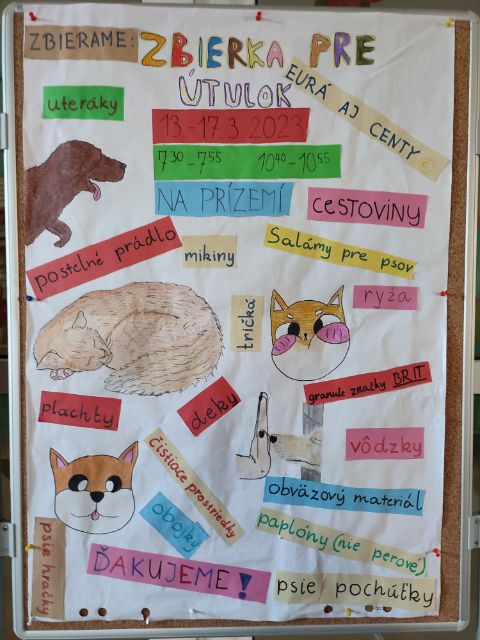 ZBIERAME:
ZBIERKA PRE
ÚTULOK
EURÁ AJ CENTY
uteráky
13.-17.3.2023
7³⁰-7⁵⁵ 10⁴⁰-10⁵⁵
NA PRÍZEMÍ
CESTOVINY
postelné prádlo
mikiny
Salámy pre psov
tričká
ryža
granule značky BRIT
plachty
deky
vôdzky
čistiace prostriedky
obväzový materiál
obojky
paplóny (nie perové)
psie hračky
ĎAKUJEME!
psie pochúťky